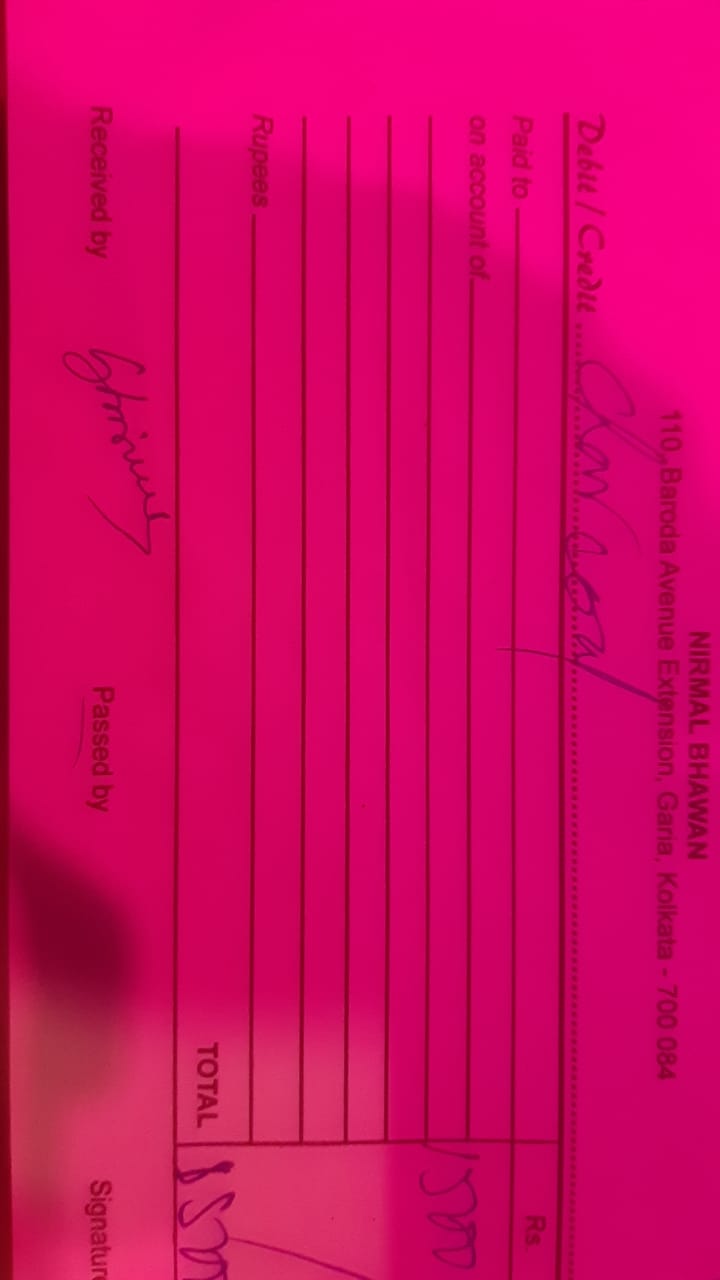 NIRMAL BHAWAN
110, Baroda Avenue Extension, Garia, Kolkata - 700 084
Debit / Credit
Paid to Rs.
on account of
1500
Rupees
TOTAL
Received by Passed by Signature